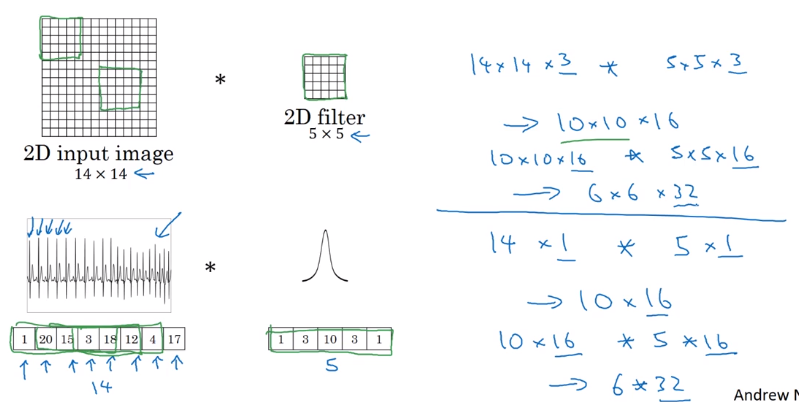 *
2D input image
14 × 14
2D filter
5 × 5
*
1 20 15 3 18 12 4 17
14
1 3 10 3 1
5
14×14 × 3 * 5×5×3
→ 10×10 ×16
10×10×16 * 5×5×16
→ 6×6 ×32
14 ×1 * 5 ×1
→ 10 ×16
10 ×16 * 5 ×16
→ 6 * 32
Andrew N